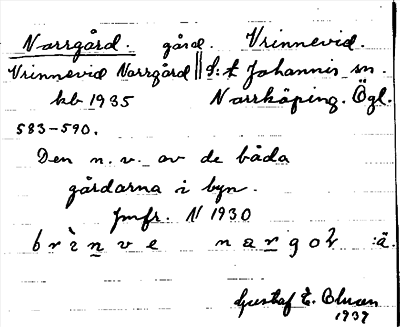 Norrgård. gård. Vrinnevid.
Vrinnevid Norrgård || S:t Johannis sn.
kb 1935 Norrköping. Ögl.
583-590.
Den n. v. av de båda
gårdarna i byn.
Jmfr. N 1930
Gustaf E.
1937